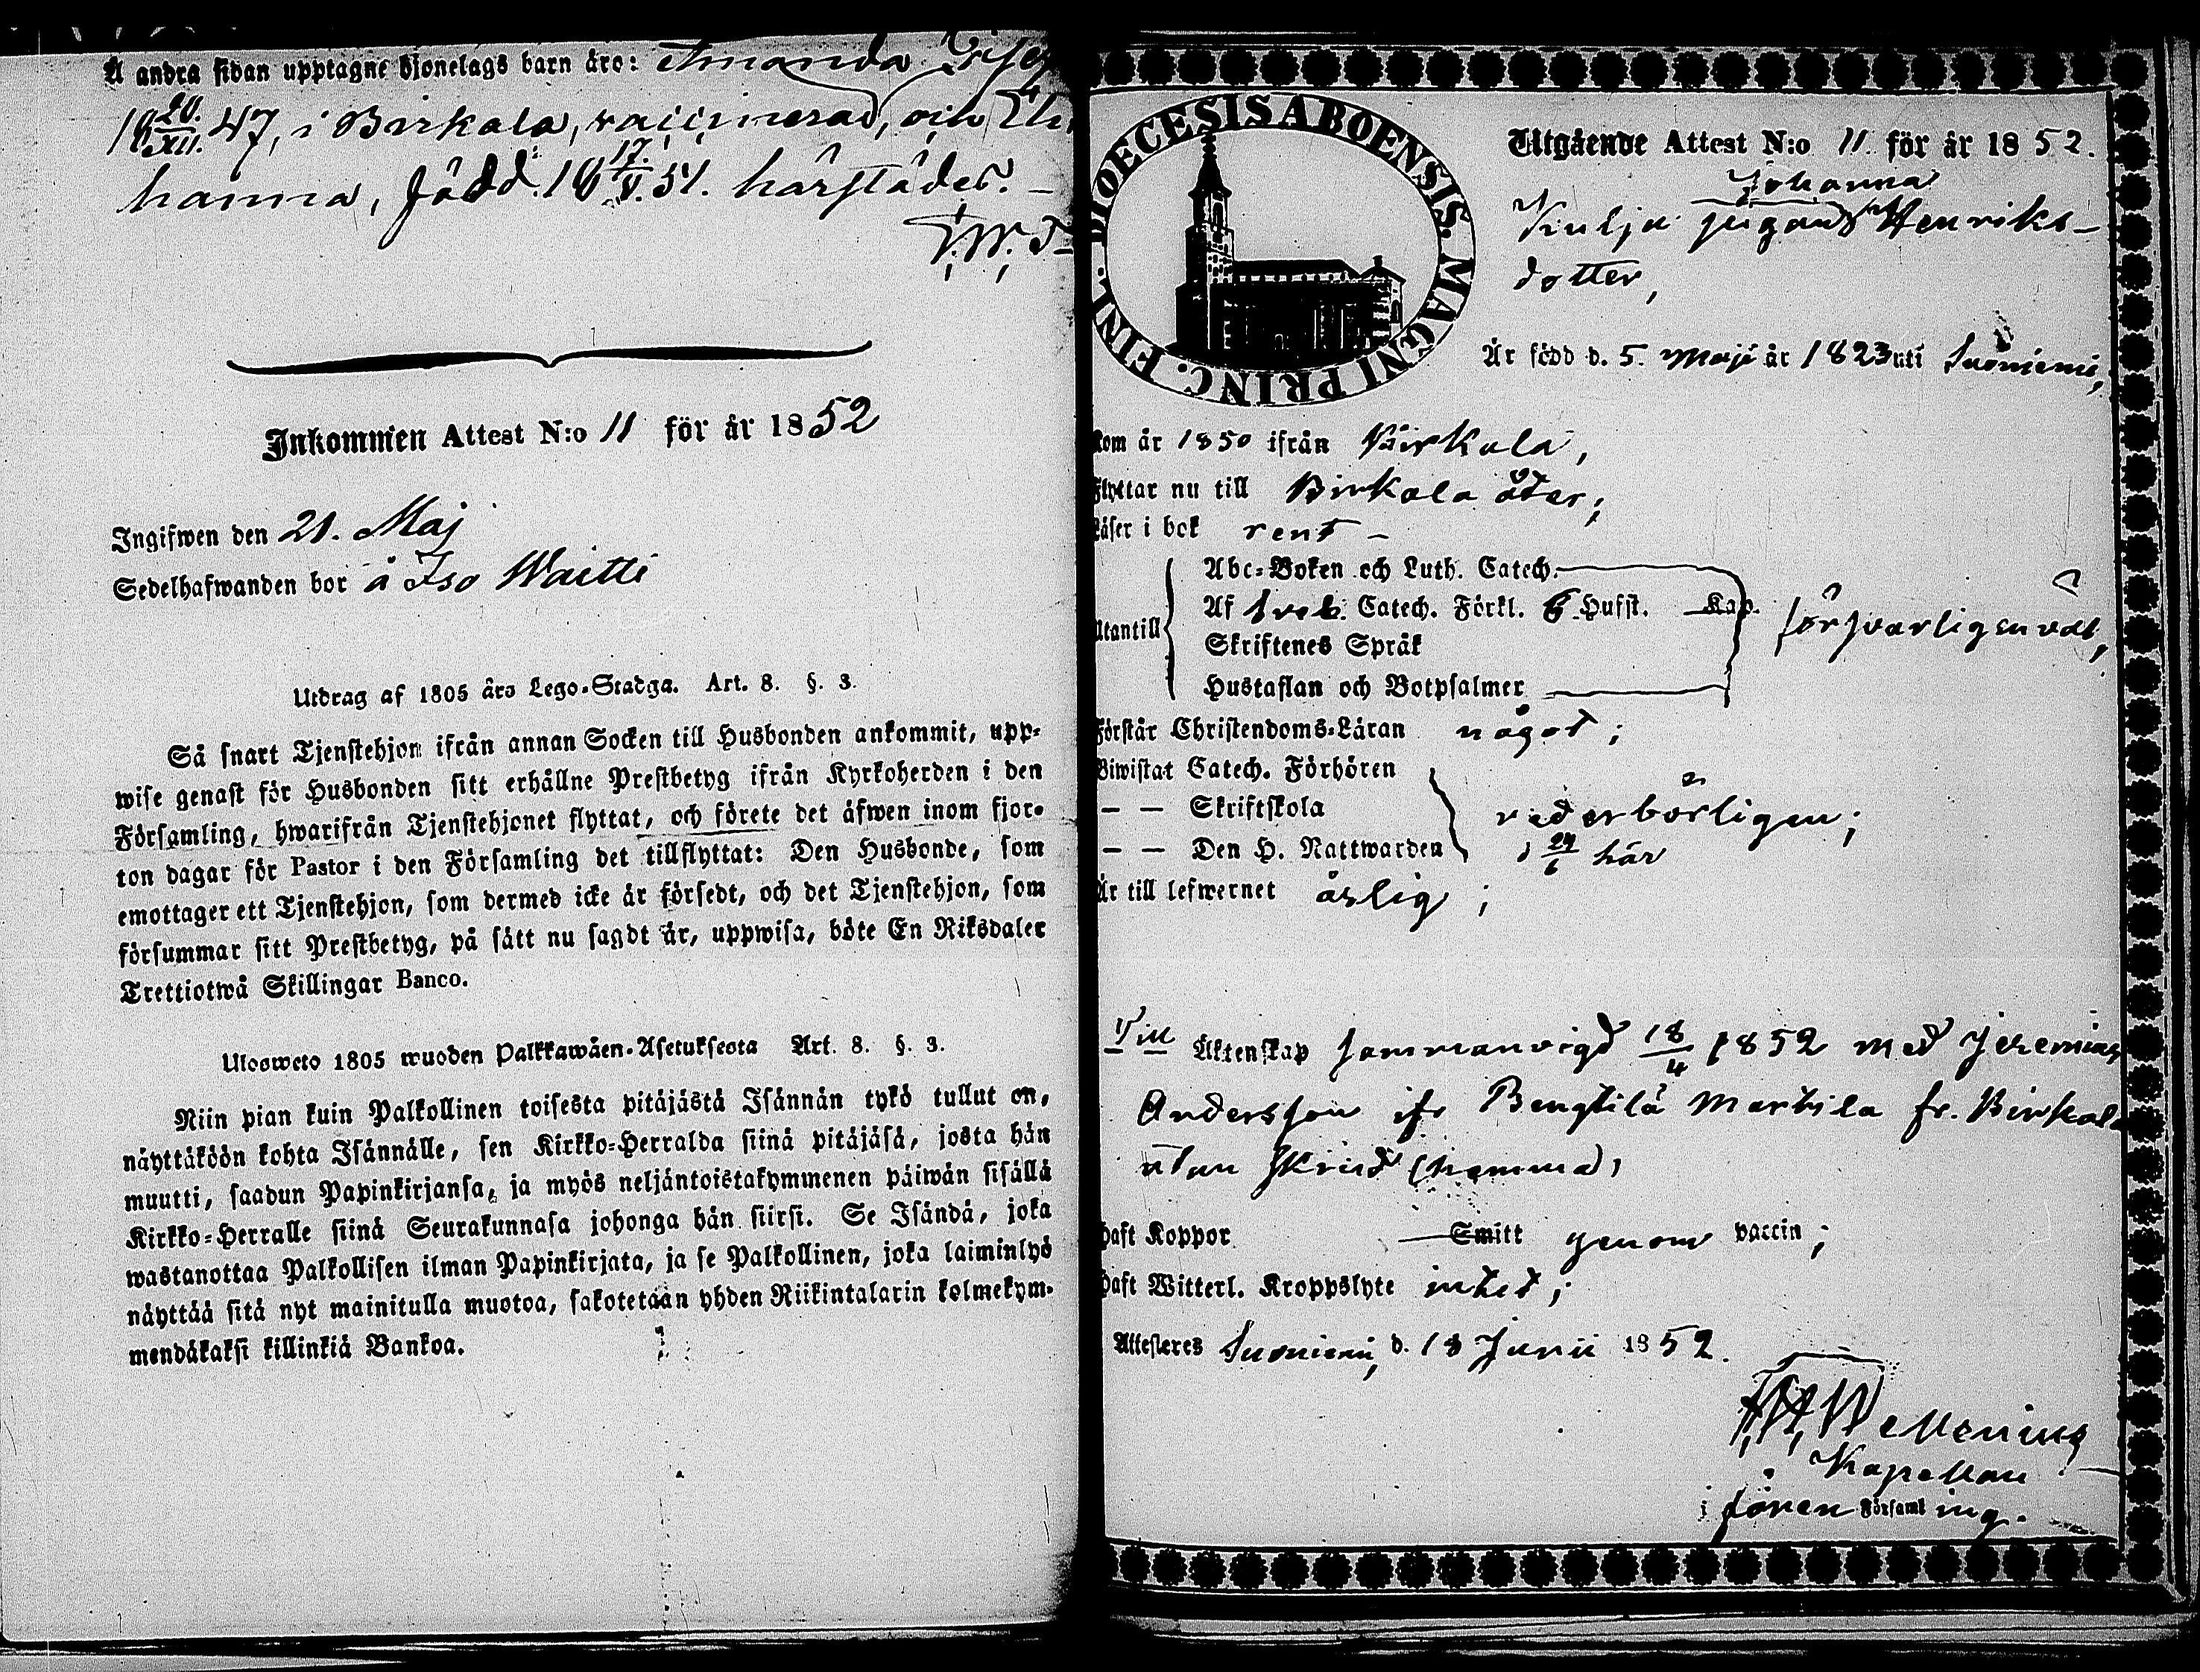 Å andra sidan upptagne hjonelags barn äro: Amanda
18 20/XII. 47, i Birkala, vaccinerad, och
hanna, född. 18 17/V. 51. härstädes. —

Inkommen Attest N:o 11 för år 1852
Ingifwen den 21. Maj
Sedelhafwanden bor å Iso Waitti
Utdrag af 1805 års Lego-Stadga. Art. 8. §. 3.
Så snart Tjenstehjon ifrån annan Socken till Husbonden ankommit, upp-
wise genast för Husbonden sitt erhållne Prestbetyg ifrån Kyrkoherden i den
Församling, hwarifrån Tjenstehjonet flyttat, och förete det äfwen inom fjor-
ton dagar för Pastor i den Församling det tillflyttat: Den Husbonde, som
emottager ett Tjenstehjon, som dermed icke är försedt, och det Tjenstehjon, som
försummar sitt Prestbetyg, på sätt nu sagdt är, uppwisa, böte En Riksdaler
Trettiotwå Skillingar Banco.
Ulosweto 1805 wuoden Palkkawäen-Asetuksesta Art. 8. §. 3.
Niin pian kuin Palkollinen toisesta pitäjästä Isännän tykö tullut on,
näyttäköön kohta Isännälle, sen Kirkko-Herralda siinä pitäjäsä, josta hän
muutti, saadun Papinkirjansa, ja myös neljäntoistakymmenen päiwän sisällä
Kirkko-Herralle siinä Seurakunnasa johonga hän siirsi. Se Isändä, joka
wastanottaa Palkollisen ilman Papinkirjata, ja se Palkollinen, joka laiminlyö
näyttää sitä nyt mainitulla muotoa, sakotetaan yhden Riikintalarin kolmekym-
mendäkaksi killinkiä Bankoa.

DIOECESIS ABOENSIS. MAGNI PRINC. FINL.
Utgående Attest N:o 11 för år 1852.
Johanna
Kulju pigans Henriks-
dotter,
Är född d. 5. Maji år 1823 uti Suoniemi,
kom år 1850 ifrån Birkala,
flyttar nu till Birkala åter;
Läser i bok rent —
Utantill
Abc-Boken och Luth. Catech.
Af Sveb. Catech. Förkl. 6. Hufst. — Kap.
Skriftenes Språk
Hustaflan och Botpsalmer
försvarligen väl,
Förstår Christendoms-Läran något;
Biwistat Catech. Förhören
— — Skriftskola
— — Den H. Nattwarden
vederbörligen;
d 29/6 här
Är till lefwernet ärlig;
Till Äktenskap sammanvigd 18/4 1852 med Jeremias
Andersson ifr Bengtilä Martila fr. Birkala
utan skrud (hemma),
haft Koppor — Smitt genom vaccin;
haft Witterl. Kroppslyte intet;
Attesteres Suoniemi, d. 18 Junii 1852.
Wellenius
Kapellan
i fören Församling.